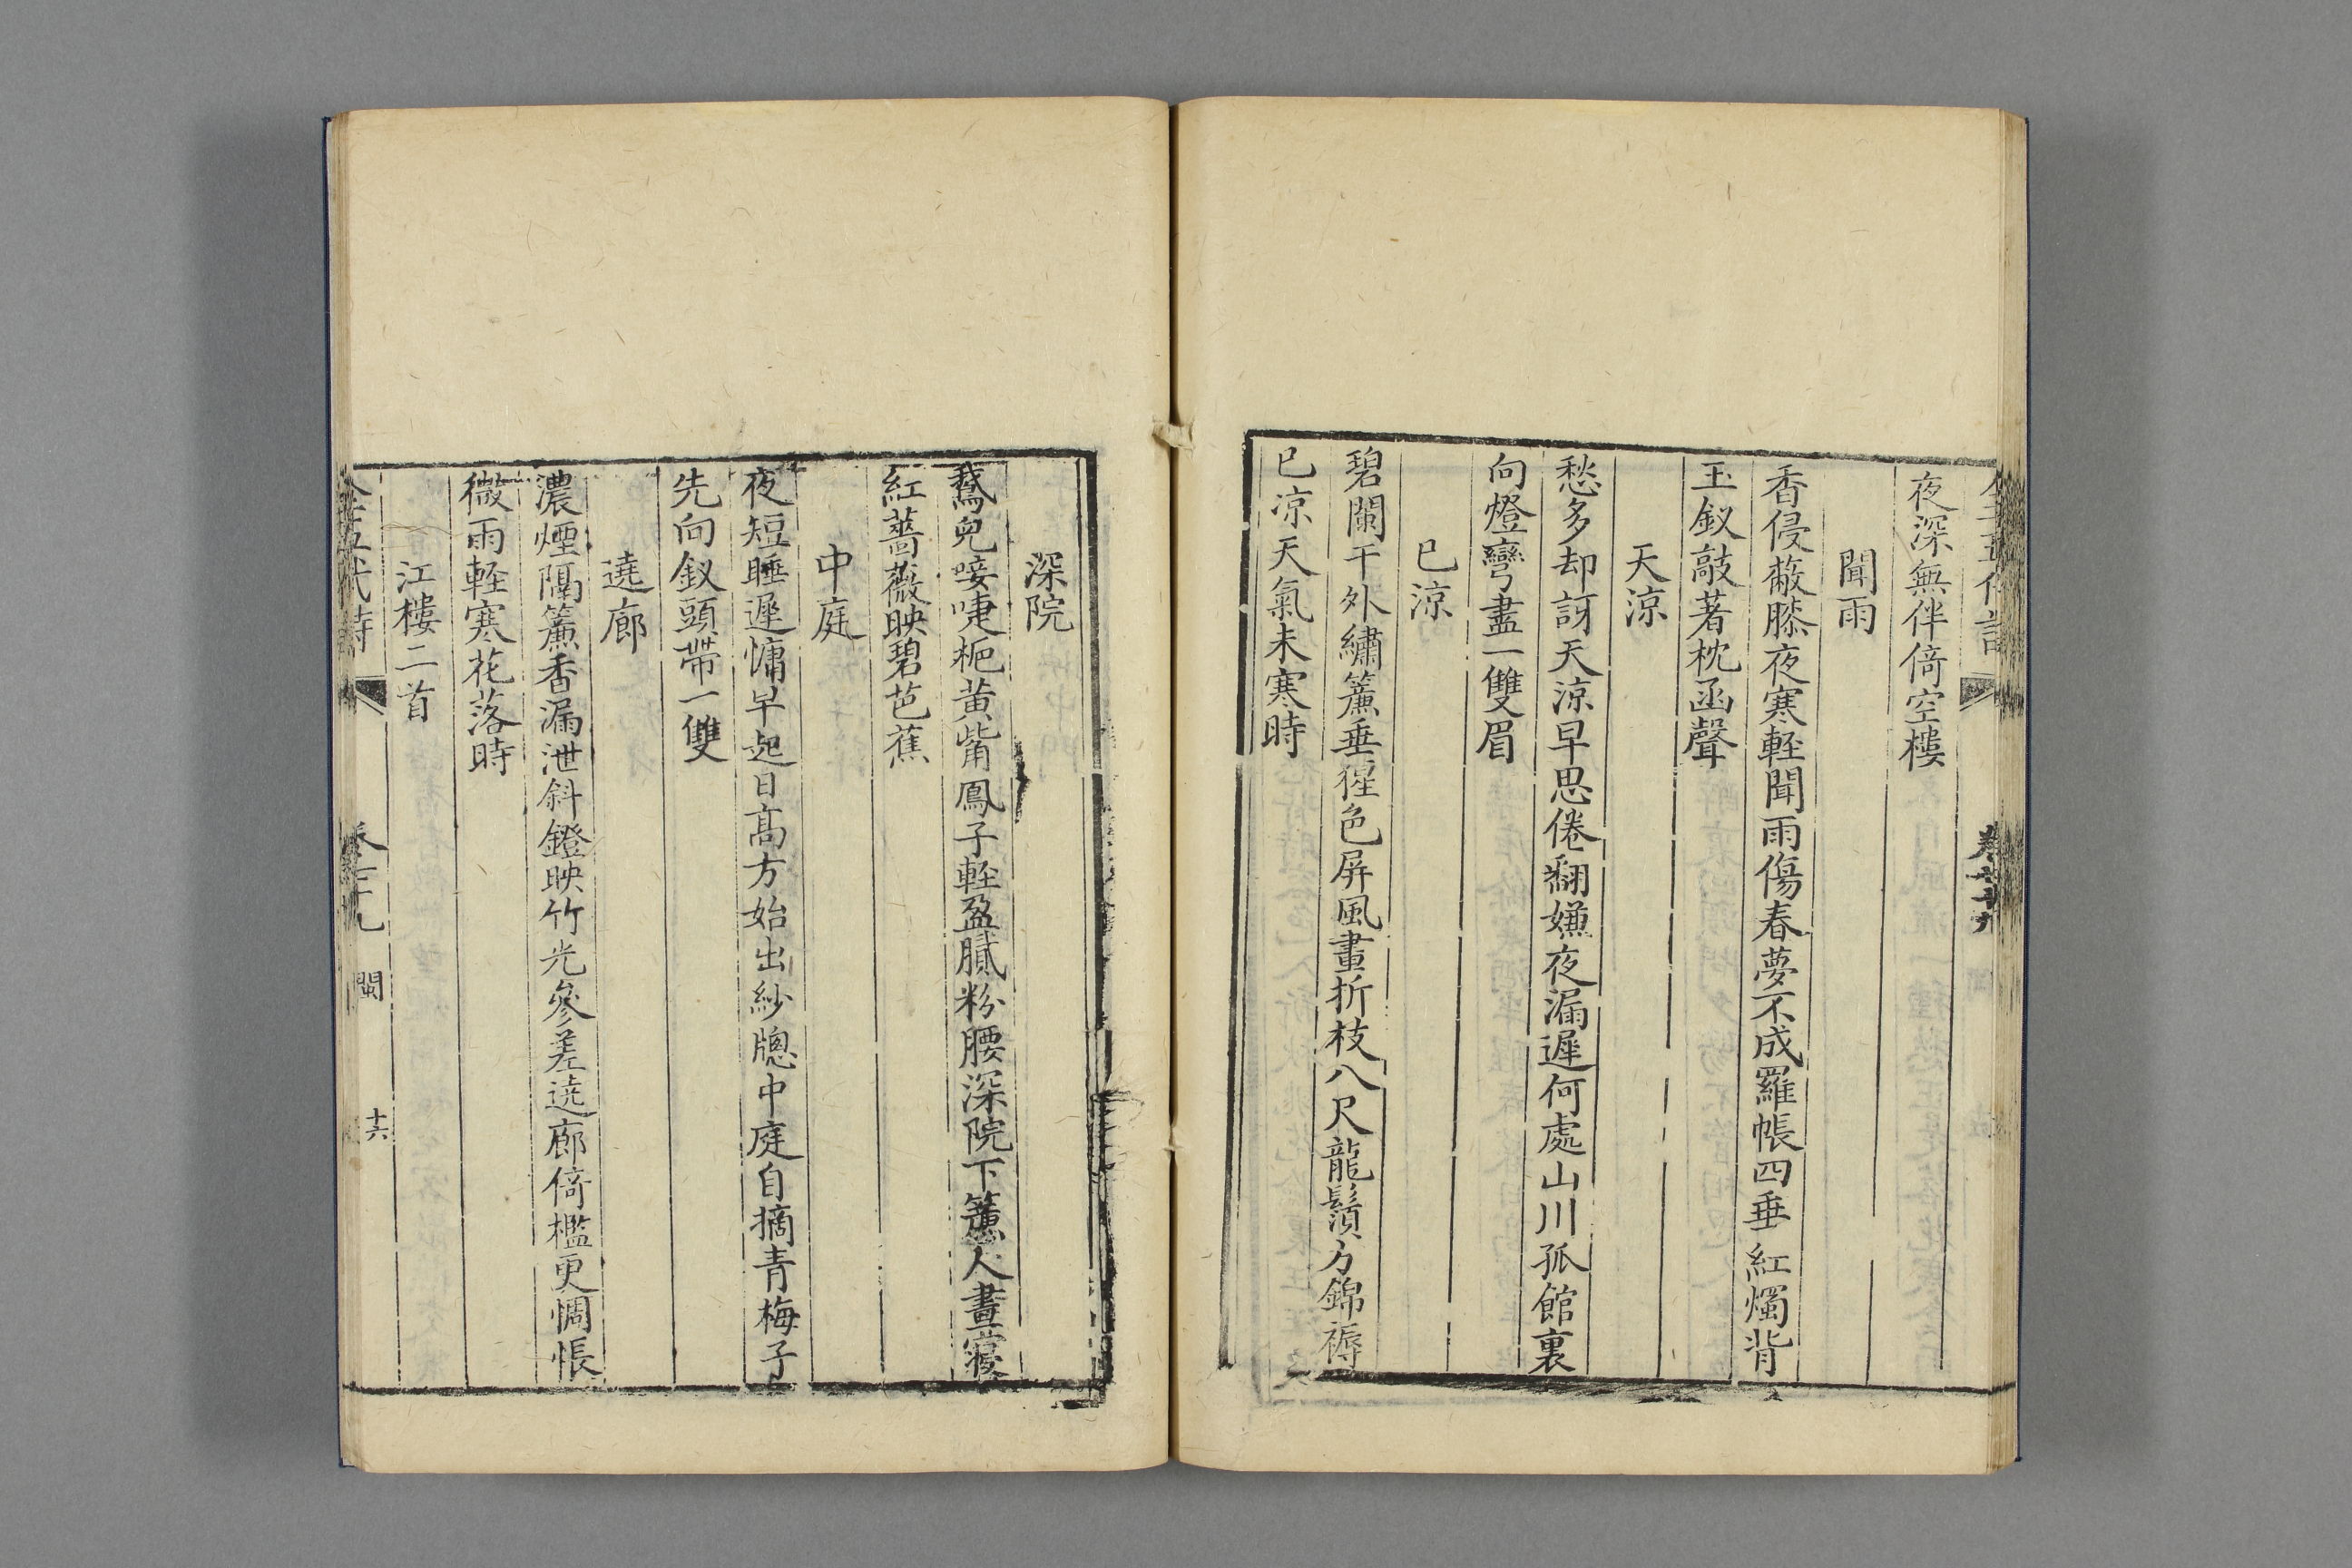 夜深無伴倚空樓
聞雨
香侵蔽膝夜寒輕聞雨傷春夢不成羅帳四垂紅燭背
玉釵敲著枕函聲
天涼
愁多却訝天涼早思倦翻嫌夜漏遲何處山川孤館裏
向燈彎盡一雙眉
已涼
碧闌干外繡簾垂猩色屏風畫折枝八尺龍鬚方錦褥
已涼天氣未寒時
深院
鵞兒唼啑梔黃觜鳳子輕盈膩粉腰深院下簾人晝寢
紅薔薇映碧芭蕉
中庭
夜短睡遲慵早起日高方始出紗牕中庭自摘青梅子
先向釵頭帶一雙
遶廊
濃煙隔簾香漏泄斜鐙映竹光參差遶廊倚檻更惆悵
微雨輕寒花落時
江樓二首
閩
十六